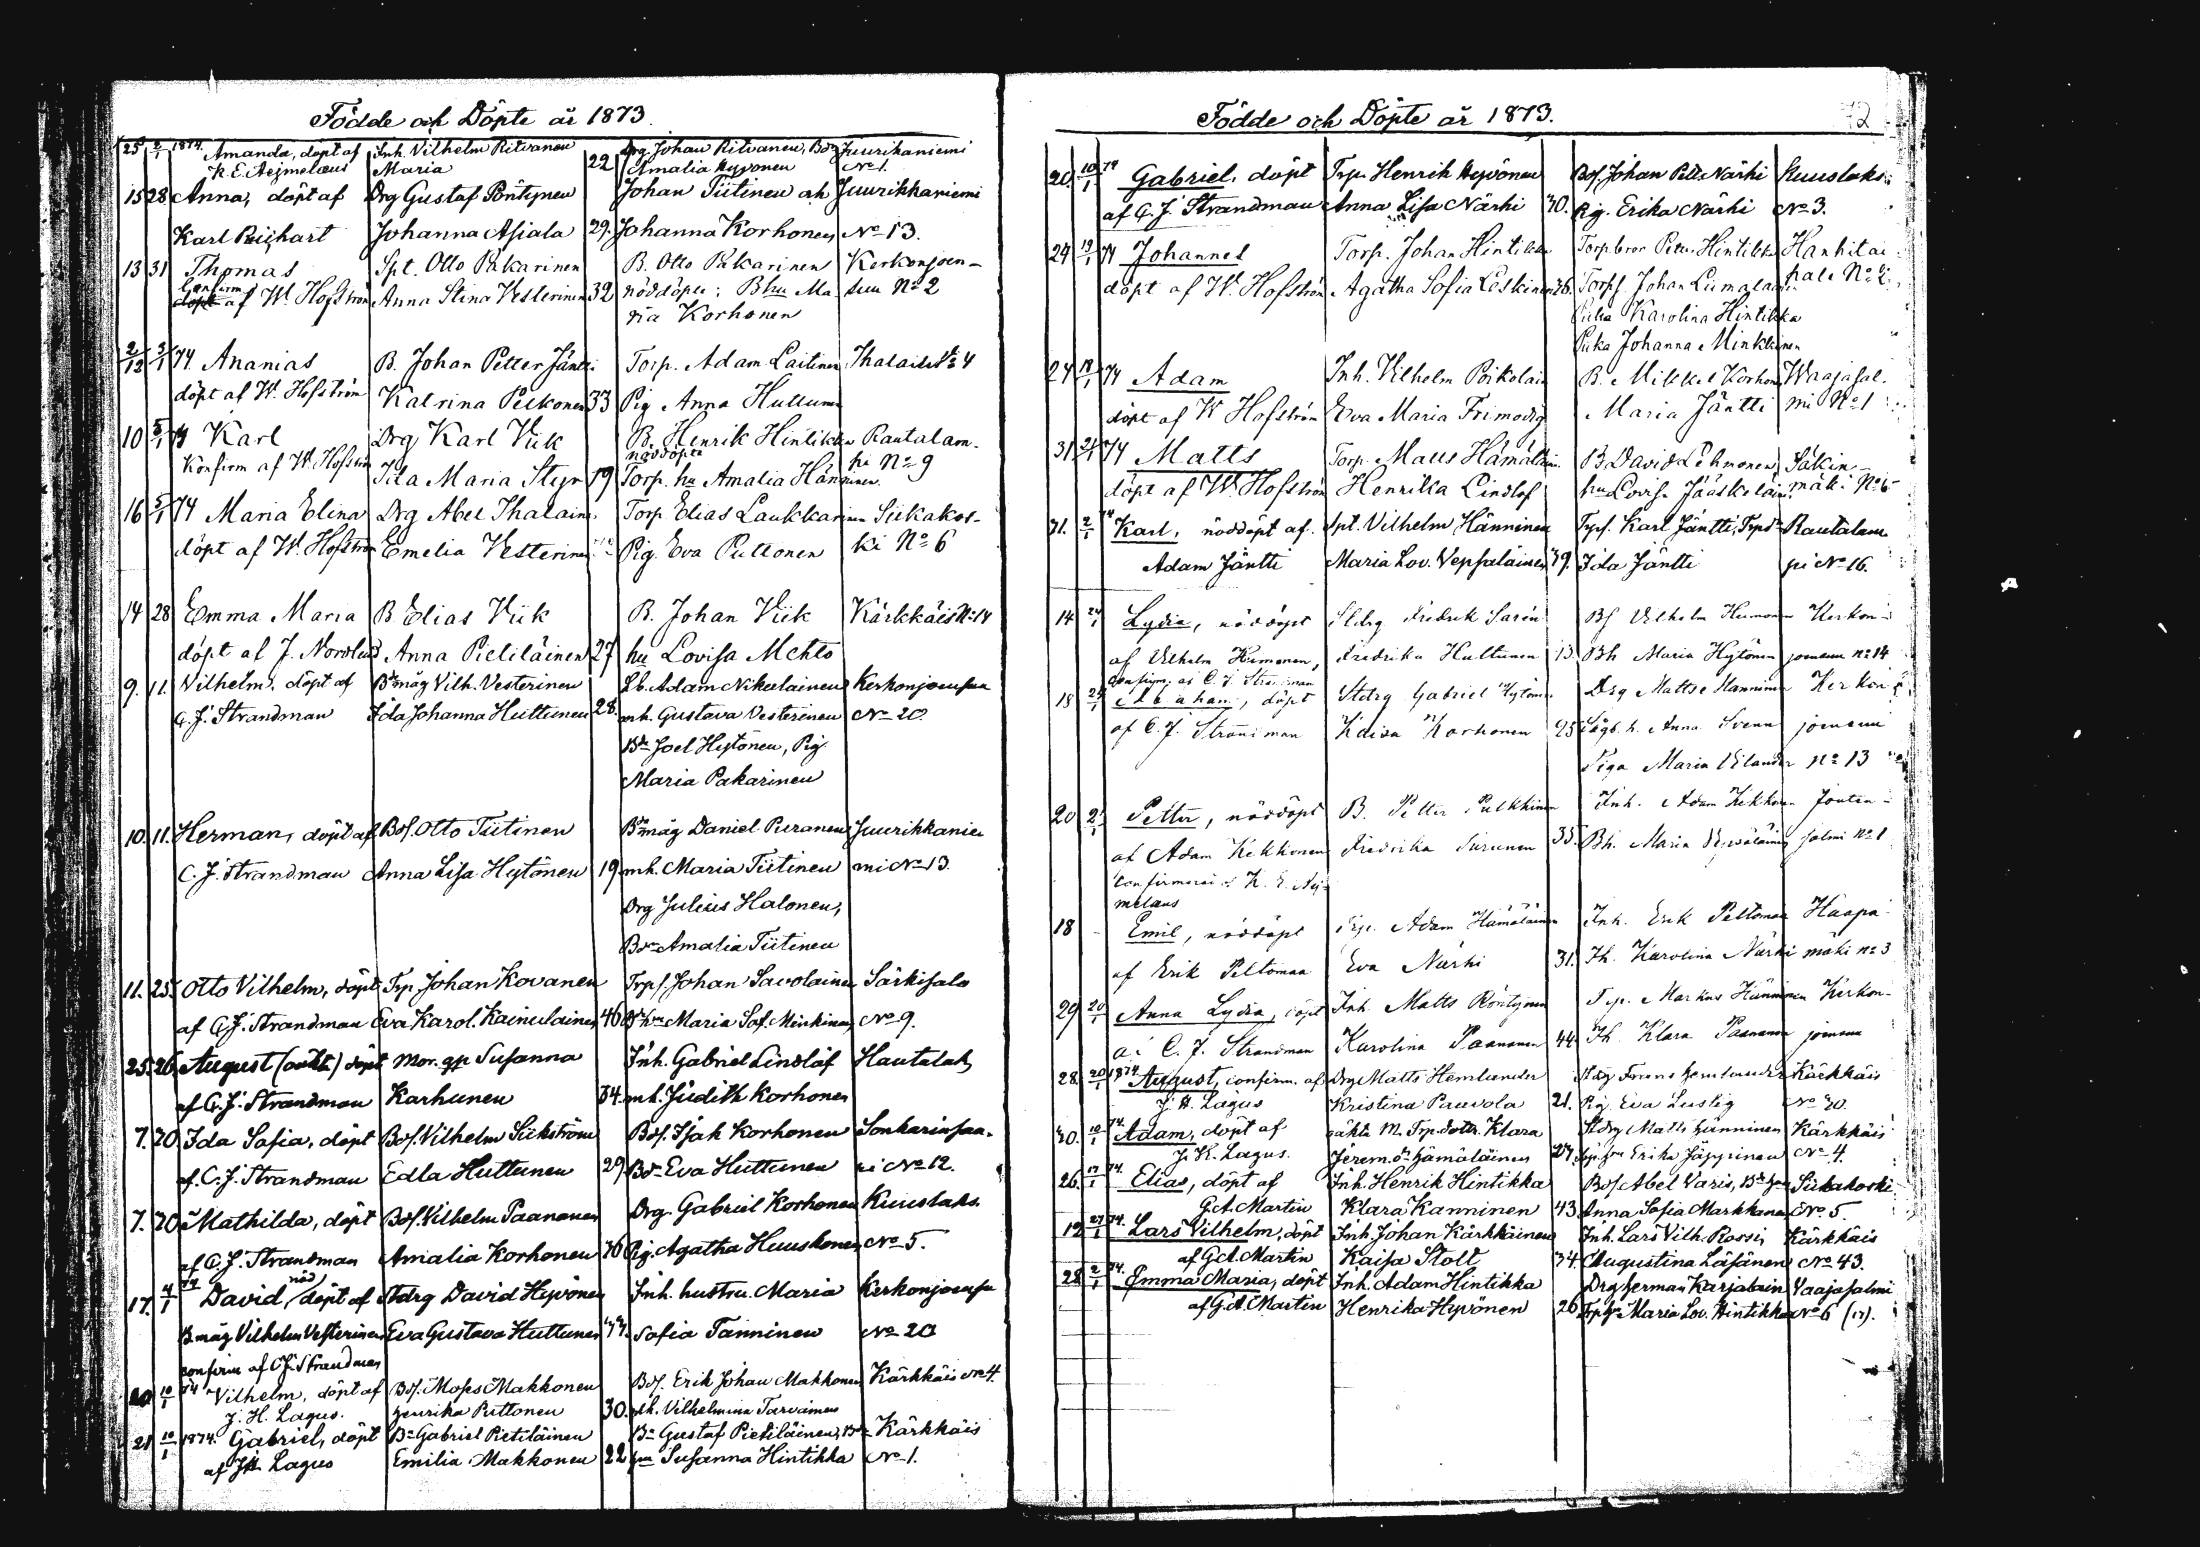 Födde och Döpte år 1873.
25 2/1 1874. Amanda, döpt af Inh. Vilhelm Ritvanen Drg Johan Ritvanen, Bdr Juurikaniemi
K. E. Aejmelæus Maria 22 Amalia Hyvönen No 1.
15 28 Anna, döpt af Drg Gustaf Pöntynen Johan Tiitinen och Juurikkaniemi
Karl Johanna Asiala 29. Johanna Korhonen No 13.
13 31 Thomas Spt. Otto Pakarinen B. Otto Pakarinen Kerkonjoen-
Confirm af W. Hofström Anna Stina Vesterinen 32 nöddöpte: Bhu Ma- suu No 2
ria Korhonen
2/12 3/1 74 Ananias B. Johan Petter Jäntti Torp. Adam Laitinen Ihalais No 4
döpt af W. Hofström Katrina Pelkonen 33 Pig Anna Huttunen
10 5/1 74 Karl Drg Karl Viik B. Henrik Hintikka Rautalam-
nöddöpte
Konfirm af W. Hofström Ida Maria Styr 19 Torp. hu Amalia Hänninen pi No 9
16 5/1 74 Maria Elina Drg Abel Ihalainen Torp Elias Laukkarinen Siikakos-
döpt af W. Hofström Emelia Vesterinen Pig. Eva Puttonen ki No 6
14 28 Emma Maria B. Elias Viik B. Johan Viik Kärkkäis No 14
döpt af J. Nordlund Anna Pietiläinen 27 hu Lovisa Mehto
9. 11. Vilhelm, döpt af Bdmåg Vilh. Vesterinen Lb. Adam Nikulainen Kerkonjoensuu
C. J. Strandman Ida Johanna Huttunen 28. mh. Gustava Vesterinen No 20.
Bdr Joel Hytönen, Pig.
Maria Pakarinen
10. 11. Herman, döpt af Bds. Otto Tiitinen Bdmåg Daniel Puranen Juurikkanie
C. J. Strandman Anna Lisa Hytönen 19 mh. Maria Tiitinen mi No 13.
Drg Julius Halonen,
Bdr Amalia Tiitinen
11. 25. Otto Vilhelm, döpt Trp Johan Kovanen Trps. Johan Savolainen Särkisalo
af C. J. Strandman Eva Karol. Kainulainen 46 Bdhu Maria Sof. Minkinen No 9.
25. 26. August (oäkta) döpt Mor. gp Susanna Inh. Gabriel Lindlöf Hautalaks
af C. J. Strandman Karhunen 34. mh. Judith Korhonen
7. 20. Ida Sofia, döpt Bds. Vilhelm Siikström Bds. Isak Korhonen Sonkarinsaa-
af. C. J. Strandman Edla Huttunen 29. Bdr Eva Huttunen ri No 12.
7. 20. Mathilda, döpt Bds. Vilhelm Paananen Drg. Gabriel Korhonen Kuuslaks.
af C. J. Strandman Amalia Korhonen 36 Pig. Agatha Huuskonen No 5.
17. 4/1 74 David, nöd döpt af Stdrg David Hyvönen Inh. hustru. Maria Kerkonjoensuu
Bmåg Vilhelm Vesterinen Eva Gustava Huttunen 37. Sofia Tanninen No 20
confirm af C. J. Strandman
20 10/1 74 Vilhelm, döpt af Bds. Moses Makkonen Bds. Erik Johan Makkonen Kärkkäis No 4.
J. H. Lagus. Henrika Puttonen 30. mh. Vilhelmina Tarvainen
21 10/1 1874. Gabriel, döpt Bd Gabriel Pietiläinen Bd Gustaf Pietiläinen, Bd Kärkkäis
af J. H. Lagus Emilia Makkonen 22 hu Susanna Hintikka No 1.
Födde och Döpte år 1873. 72
20. 10/1 74 Gabriel, döpt Trp. Henrik Hyvönen Bds. Johan Pett. Närhi Kuuslaks
af C. J. Strandman Anna Lisa Närhi 30. Pig. Erika Närhi No 3.
24 19/1 74 Johannes Torp. Johan Hintikka Torp.bror Petter Hintikka Hanhitai-
döpt af W. Hofström Agatha Sofia Leskinen 36. Torps. Johan Liimatainen pale No 2
Piika Karolina Hintikka
Piika Johanna Minkkinen
24 18/1 74 Adam Inh. Vilhelm Poikolain B. Mikkel Korhonen Waajasal-
döpt af W Hofström Eva Maria Frimodig Maria Jäntti mi No 1
31. 21/1 74 Matts Torp. Matts Hämäläin. B David Lehmonen Säkin-
döpt af W. Hofström Henrika Lindlöf hu Lovisa Jääskeläin. mäki No 6
31. 2/1 74 Karl, nöddöpt af Spt. Vilhelm Hänninen Trps. Karl Jäntti, Trpdr Rautalam
Adam Jäntti Maria Lov. Vepsäläinen 39. Ida Jäntti pi No 16.
14 24/1 Lydia, nöddöpt Sldrg Fredrik Sarén Bs Vilhelm Heimonen Kerkon-
af Vilhelm Heimonen, Fredrika Huttunen 13. Bh Maria Hytönen joensuu No 14
confirm. af C. J. Strandman
18 25/1 Abraham, döpt Stdrg Gabriel Hytönen Drg Matts Hänninen Kerkon-
af C. J. Strandman Kaisa Korhonen 25 Lägb. h. Anna Svenn joensuu
Piga Maria Vilander No 13
20 2/1 Petter, nöddöpt B. Petter Pulkkinen Inh. Adam Kekkonen Jouten-
af Adam Kekkonen Fredrika Surunen 35. Bh. Maria Vepsäläinen salmi No 1
confirmerad af K. E. Aej-
melæus
18 Emil, nöddöpt Trp. Adam Hämäläinen Inh. Erik Peltomaa Haapa-
af Erik Peltomaa Eva Närhi 31. Ih. Karolina Närhi mäki No 3
29 20/1 Anna Lydia, döpt Inh. Matts Röntynen Trp. Markus Hänninen Kerkon-
af C. J. Strandman Karolina Paananen 44. Ih. Klara Paananen joensuu
28. 20/1 1874 August, confirm. af Drg Matts Hemlander Stdrg Frans Hemlander Kärkkäis
J. H. Lagus Kristina Pauvola 21. Pig. Eva Lustig No 30.
30. 10/1 74. Adam, döpt af oäkta M. Trp.dottr. Klara Stdrg Matts Hänninen Kärkkäis
J. H. Lagus. Jerem.dr Hämäläinen 27. Trps.hu Erika Jäppinen No 4.
26. 17/1 74. Elias, döpt af Inh. Henrik Hintikka Bds Abel Varis, Bdr Siikakoski
G. A. Martin Klara Kanninen 43 Anna Sofia Markkanen No 5.
12 27/1 74. Lars Vilhelm, döpt Inh. Johan Kärkkäinen Inh. Lars Vilh. Rossi, Kärkkäis
af G. A. Martin Kaisa Stolt 34. Augustina Läsänen No 43.
28 2/1 74. Emma Maria, döpt Inh. Adam Hintikka Drg Herman Karjalain Vaajasalmi
af G. A. Martin Henrika Hyvönen 26 Trphu Maria Lov. Hintikka No 6 (17).